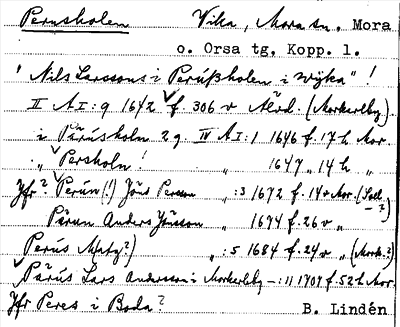 Perusholen Vika, Mora sn. Mora
o. Orsa tg, Kopp. l.
"Nils Larssons i Perüßholen i wijka" !
II A I : 9 1642 f. 306 v Älvd. (Morkarlby).
i Pärüsholn 2 g. IV A I : 1 1646 f. 17 h Mor.
" Persholn ! " 1647 " 14 h "
Jfr? Perün (!) Jöns Persson " : 3 1672 f. 14 v Mor.
Pärun Anders Jönsson " 1674 f. 26 v "
Perüs Matz ?) " : 5 1684 f. 24 v " (Mork. ?)
Pärüs Lars Andersson i Morkerlby - : 11 1709 f. 52 h Mor.
Jfr Peres i Boda ? B. Lindén